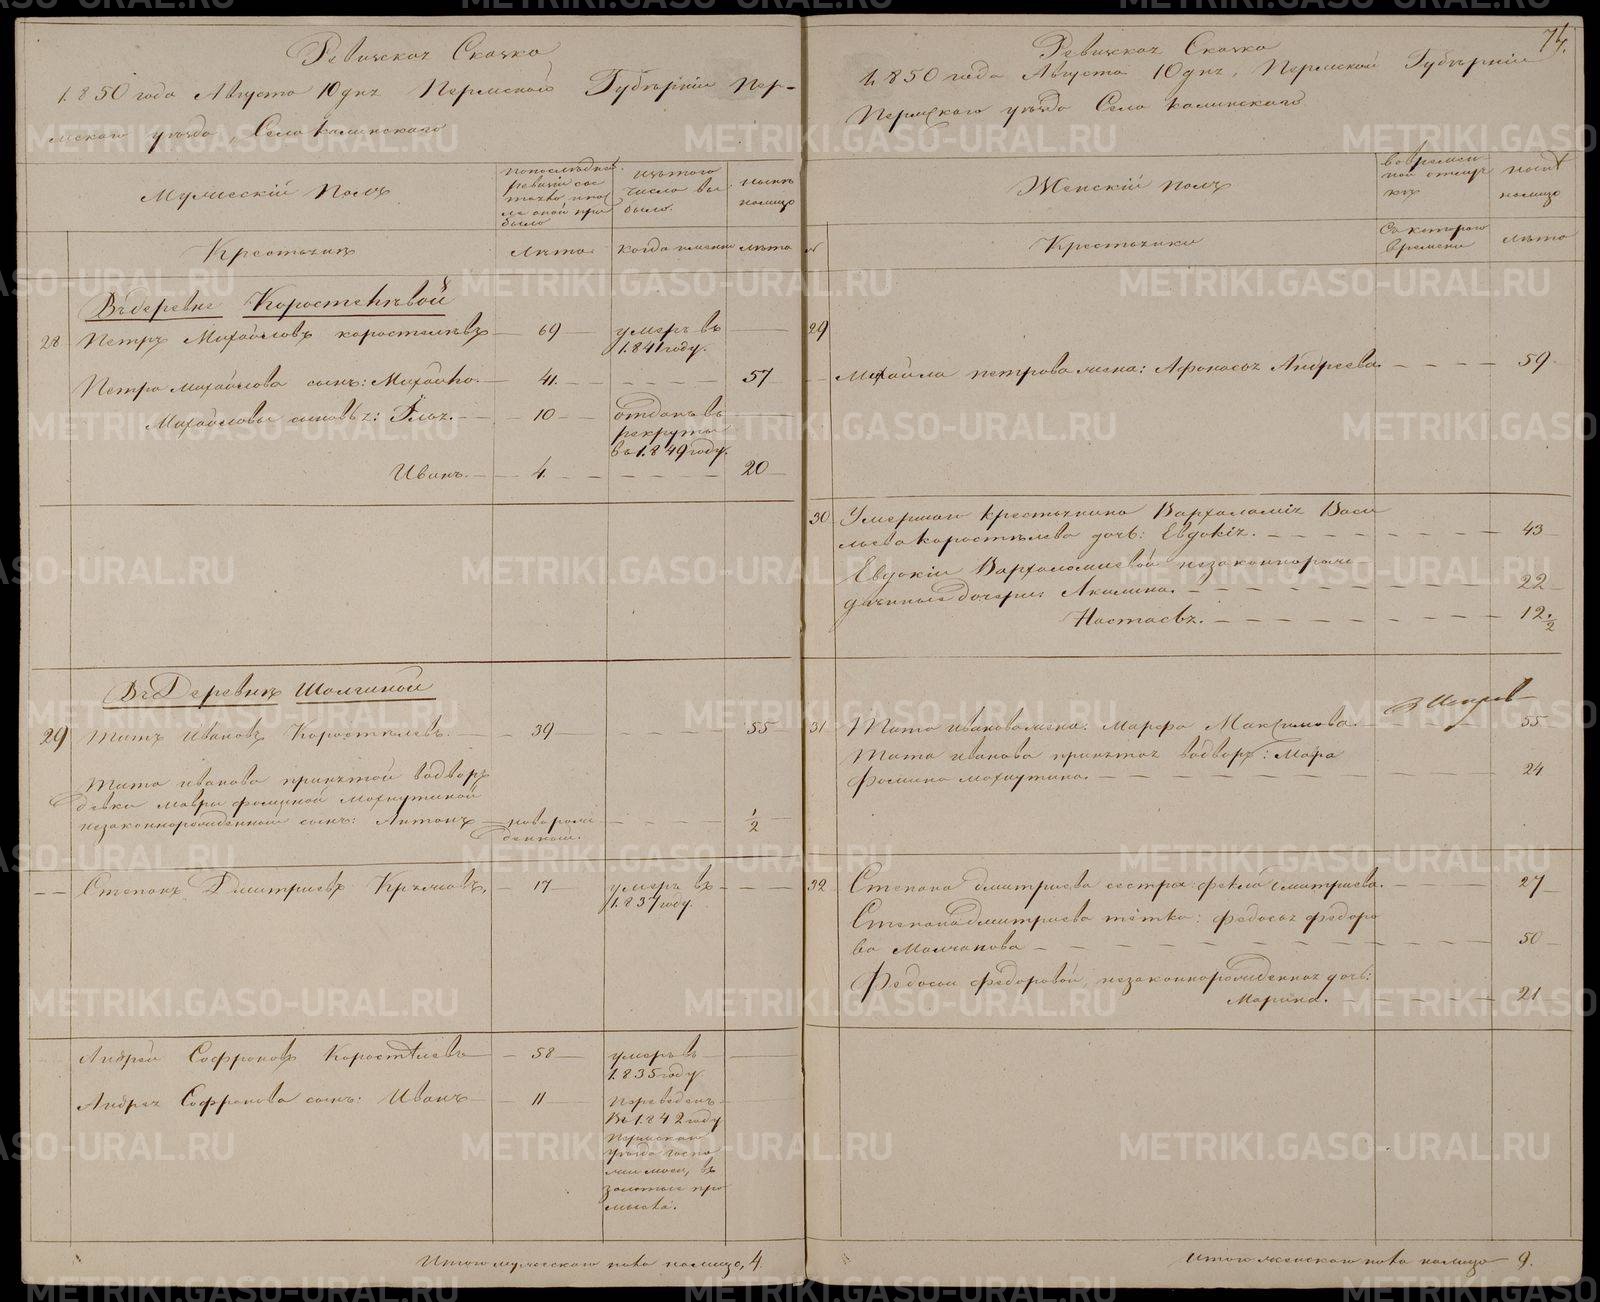 74.
Ревизская Сказка
1850 года Августа 10 дня Пермской Губернии Пер-
мскаго уезда, Села Калинскаго
Мужеский Полъ
по последней ревизии состояло и после оной прибыло
изъ того числа выбыло
ныне налицо
Крестьяне
Лета
когда именно
лета
Въ деревне Коростелевой
28 Петръ Михайловъ Коростелевъ — 69 — умеръ въ 1841 году.
Петра Михайлова сынъ: Михайло — 41 — 57
Михайловы сыновья: Илья. — 10 — отданъ въ рекруты въ 1849 году.
Иванъ. — 4 — 20
Въ Деревне Шолгиной
29 Титъ Ивановъ Коростелевъ. — 39 — 55
Тита Иванова принятой водворъ
девки Мавры Фоминой Мохнуткиной
незаконнорожденный сынъ: Антонъ — новорожденный. — 1/2
Степанъ Дмитриевъ — 17 — умеръ въ 1837 году.
Андрей Софроновъ Коростелевъ — 58 — умеръ въ 1835 году.
Андрея Софронова сынъ: Иванъ — 11 — Переведенъ
въ 1842 году
Пермскаго
уезда
въ
золотые про
мысла.
Итого мужескаго пола налицо, 4
Ревизская Сказка
1850 года Августа 10 дня, Пермской Губернии
Пермскаго уезда Села Калинскаго
Женский полъ
во временной отлучке
ныне налицо
№
Крестьянки
Съ котораго времени
лета
29
Михайла Петрова жена: Афонасья Андреева. — 59
30 Умершаго крестьянина Варфаламия Васи
льева Коростелева дочь: Евдокия. — 43
Евдокии Варфоломиевой незаконнорож
денные дочери: Акилина. — 22
Настасья. — 12 1/2
31 Тита Иванова жена: Марфа Максимова. — 55
Тита Иванова принятая водворъ: Мавра
Фомина Мохнуткина. — 24
32 Степана Дмитриева сестра Фекла Дмитриева. — 27
Степана Дмитриева тётка: Федосья Федоро
ва Молчанова — 50
Федосьи Федоровой, незаконнорожденная дочь:
Марина. — 21
Итого женскаго пола налицо 9.
METRIKI.GASO-URAL.RU